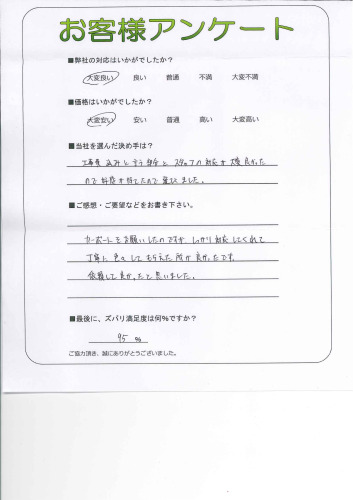 お客様アンケート
■弊社の対応はいかがでしたか?
大変良い 良い 普通 不満 大変不満
■価格はいかがでしたか?
大変安い 安い 普通 高い 大変高い
■当社を選んだ決め手は?
工事費込みと言う部分とスタッフの対応が大変良かった
ので好感が持てたので選びました。
■ご感想・ご要望などをお書き下さい。
カーポートをお願いしたのですがしっかり対応してくれて
丁寧に色々してもらえた所が良かったです。
依頼して良かったと思いました。
■最後に、ズバリ満足度は何%ですか?
95 %
ご協力頂き、誠にありがとうございました。